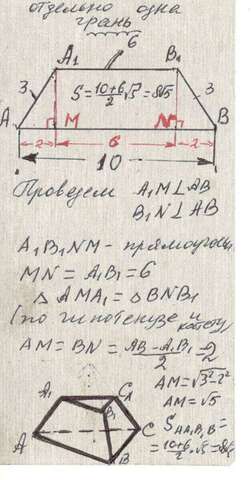 отдельно одна
грань
6
A₁ B₁
3 S = (10+6)/2 √5 = 8√5 3
A M N B
2 6 2
10
Проведем A₁M⊥AB
B₁N⊥AB
A₁B₁NM - прямоугольн
MN = A₁B₁ = 6
△ AMA₁ = △ BNB₁
(по гипотенузе и катету)
AM = BN = (AB - A₁B₁)/2 = 2
AM = √3²-2²
AM = √5
A₁ C₁
B₁ S AA₁B₁B =
A C = (10+6)/2 · √5 = 8√5
B